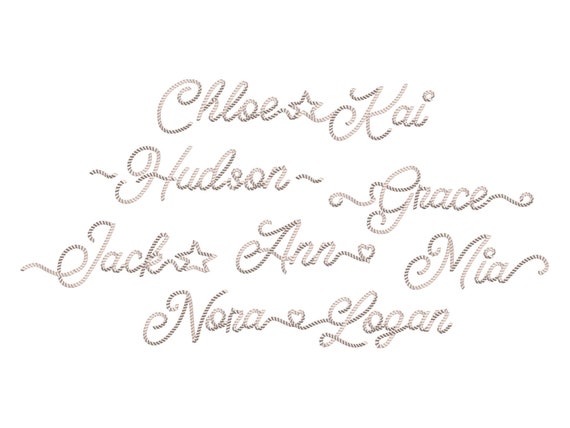 Chloe Kai
Hudson Grace
Jack Ann Mia
Nora Logan